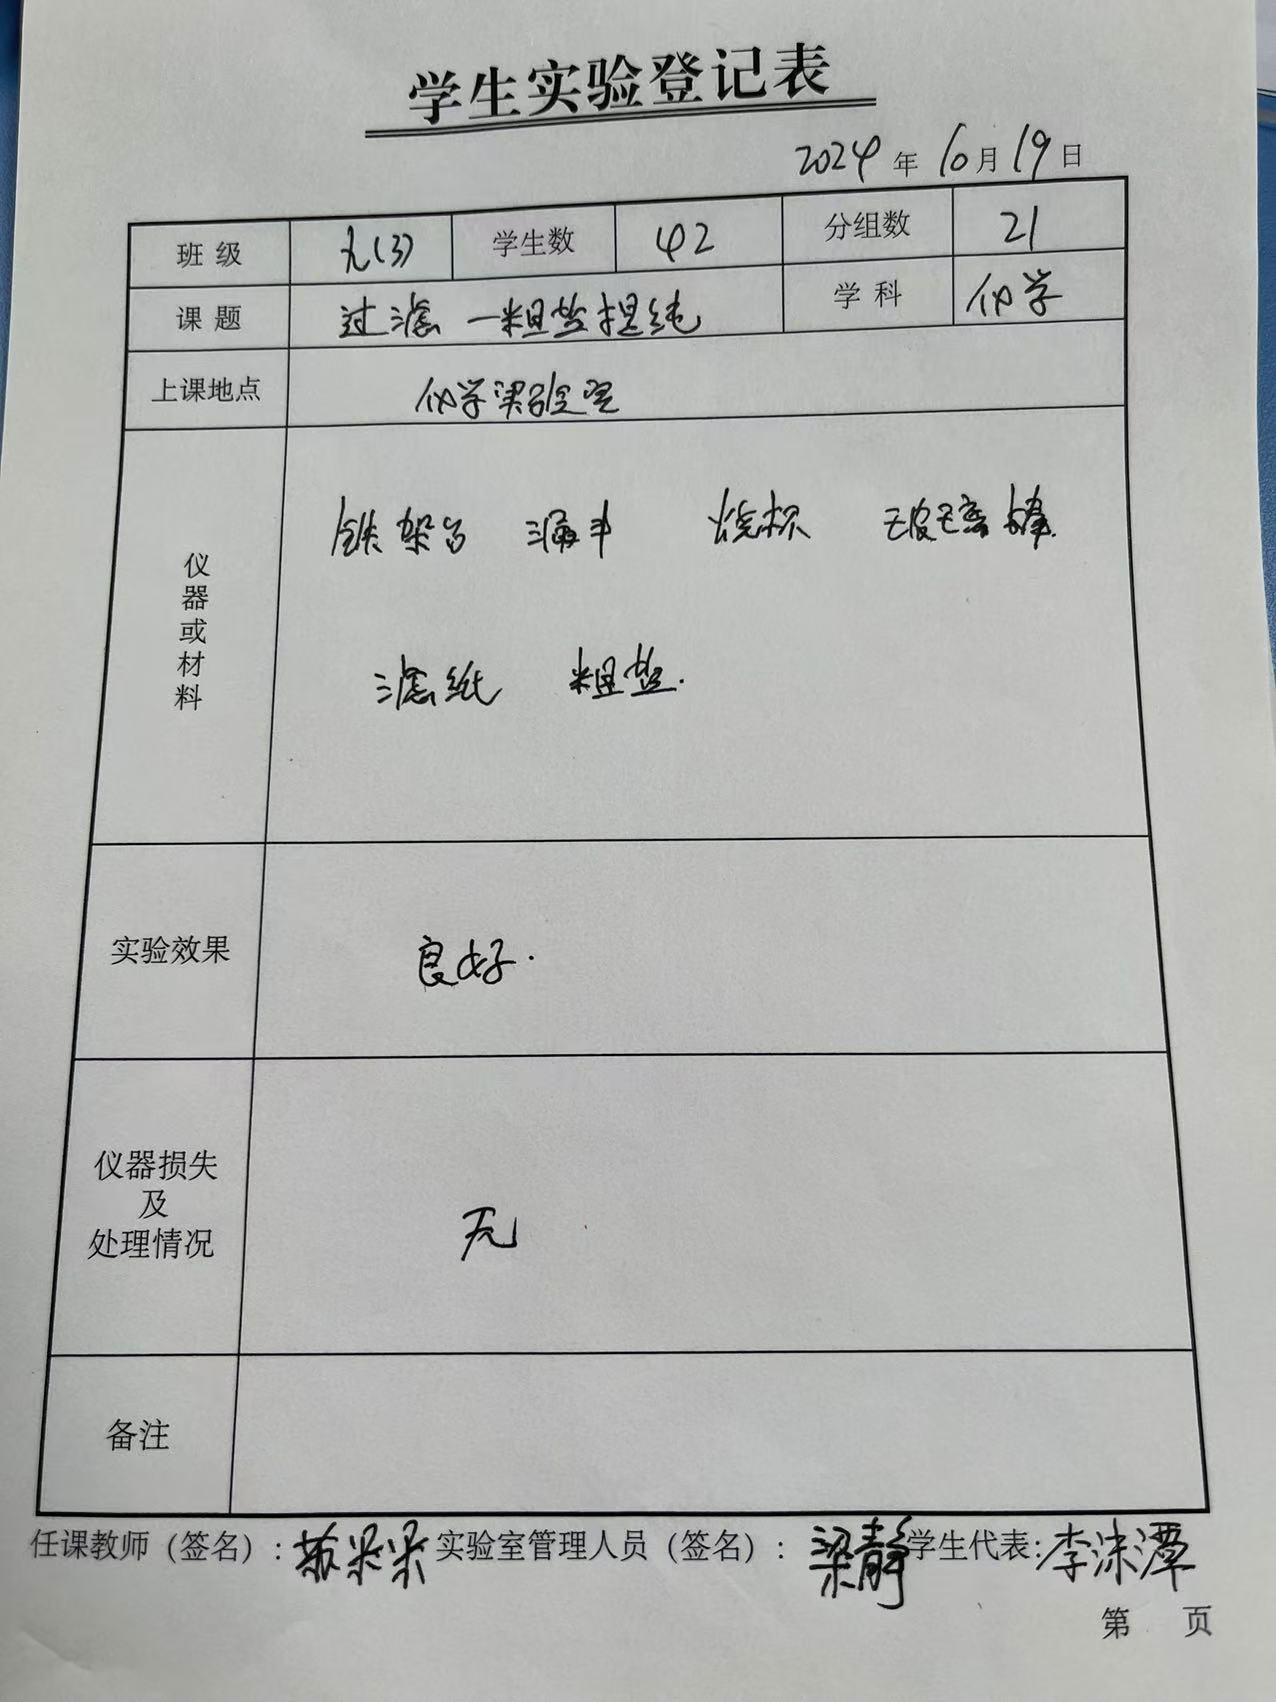 学生实验登记表
2024年10月19日
班级 九(3) 学生数 42 分组数 21
课题 过滤—粗盐提纯 学科 化学
上课地点 化学实验室
仪器或材料
铁架台 漏斗 烧杯 玻璃棒.
滤纸 粗盐.
实验效果 良好.
仪器损失
及
处理情况
无
备注
任课教师（签名）: 苏 实验室管理人员（签名）: 梁静 学生代表: 李沫潭
第 页